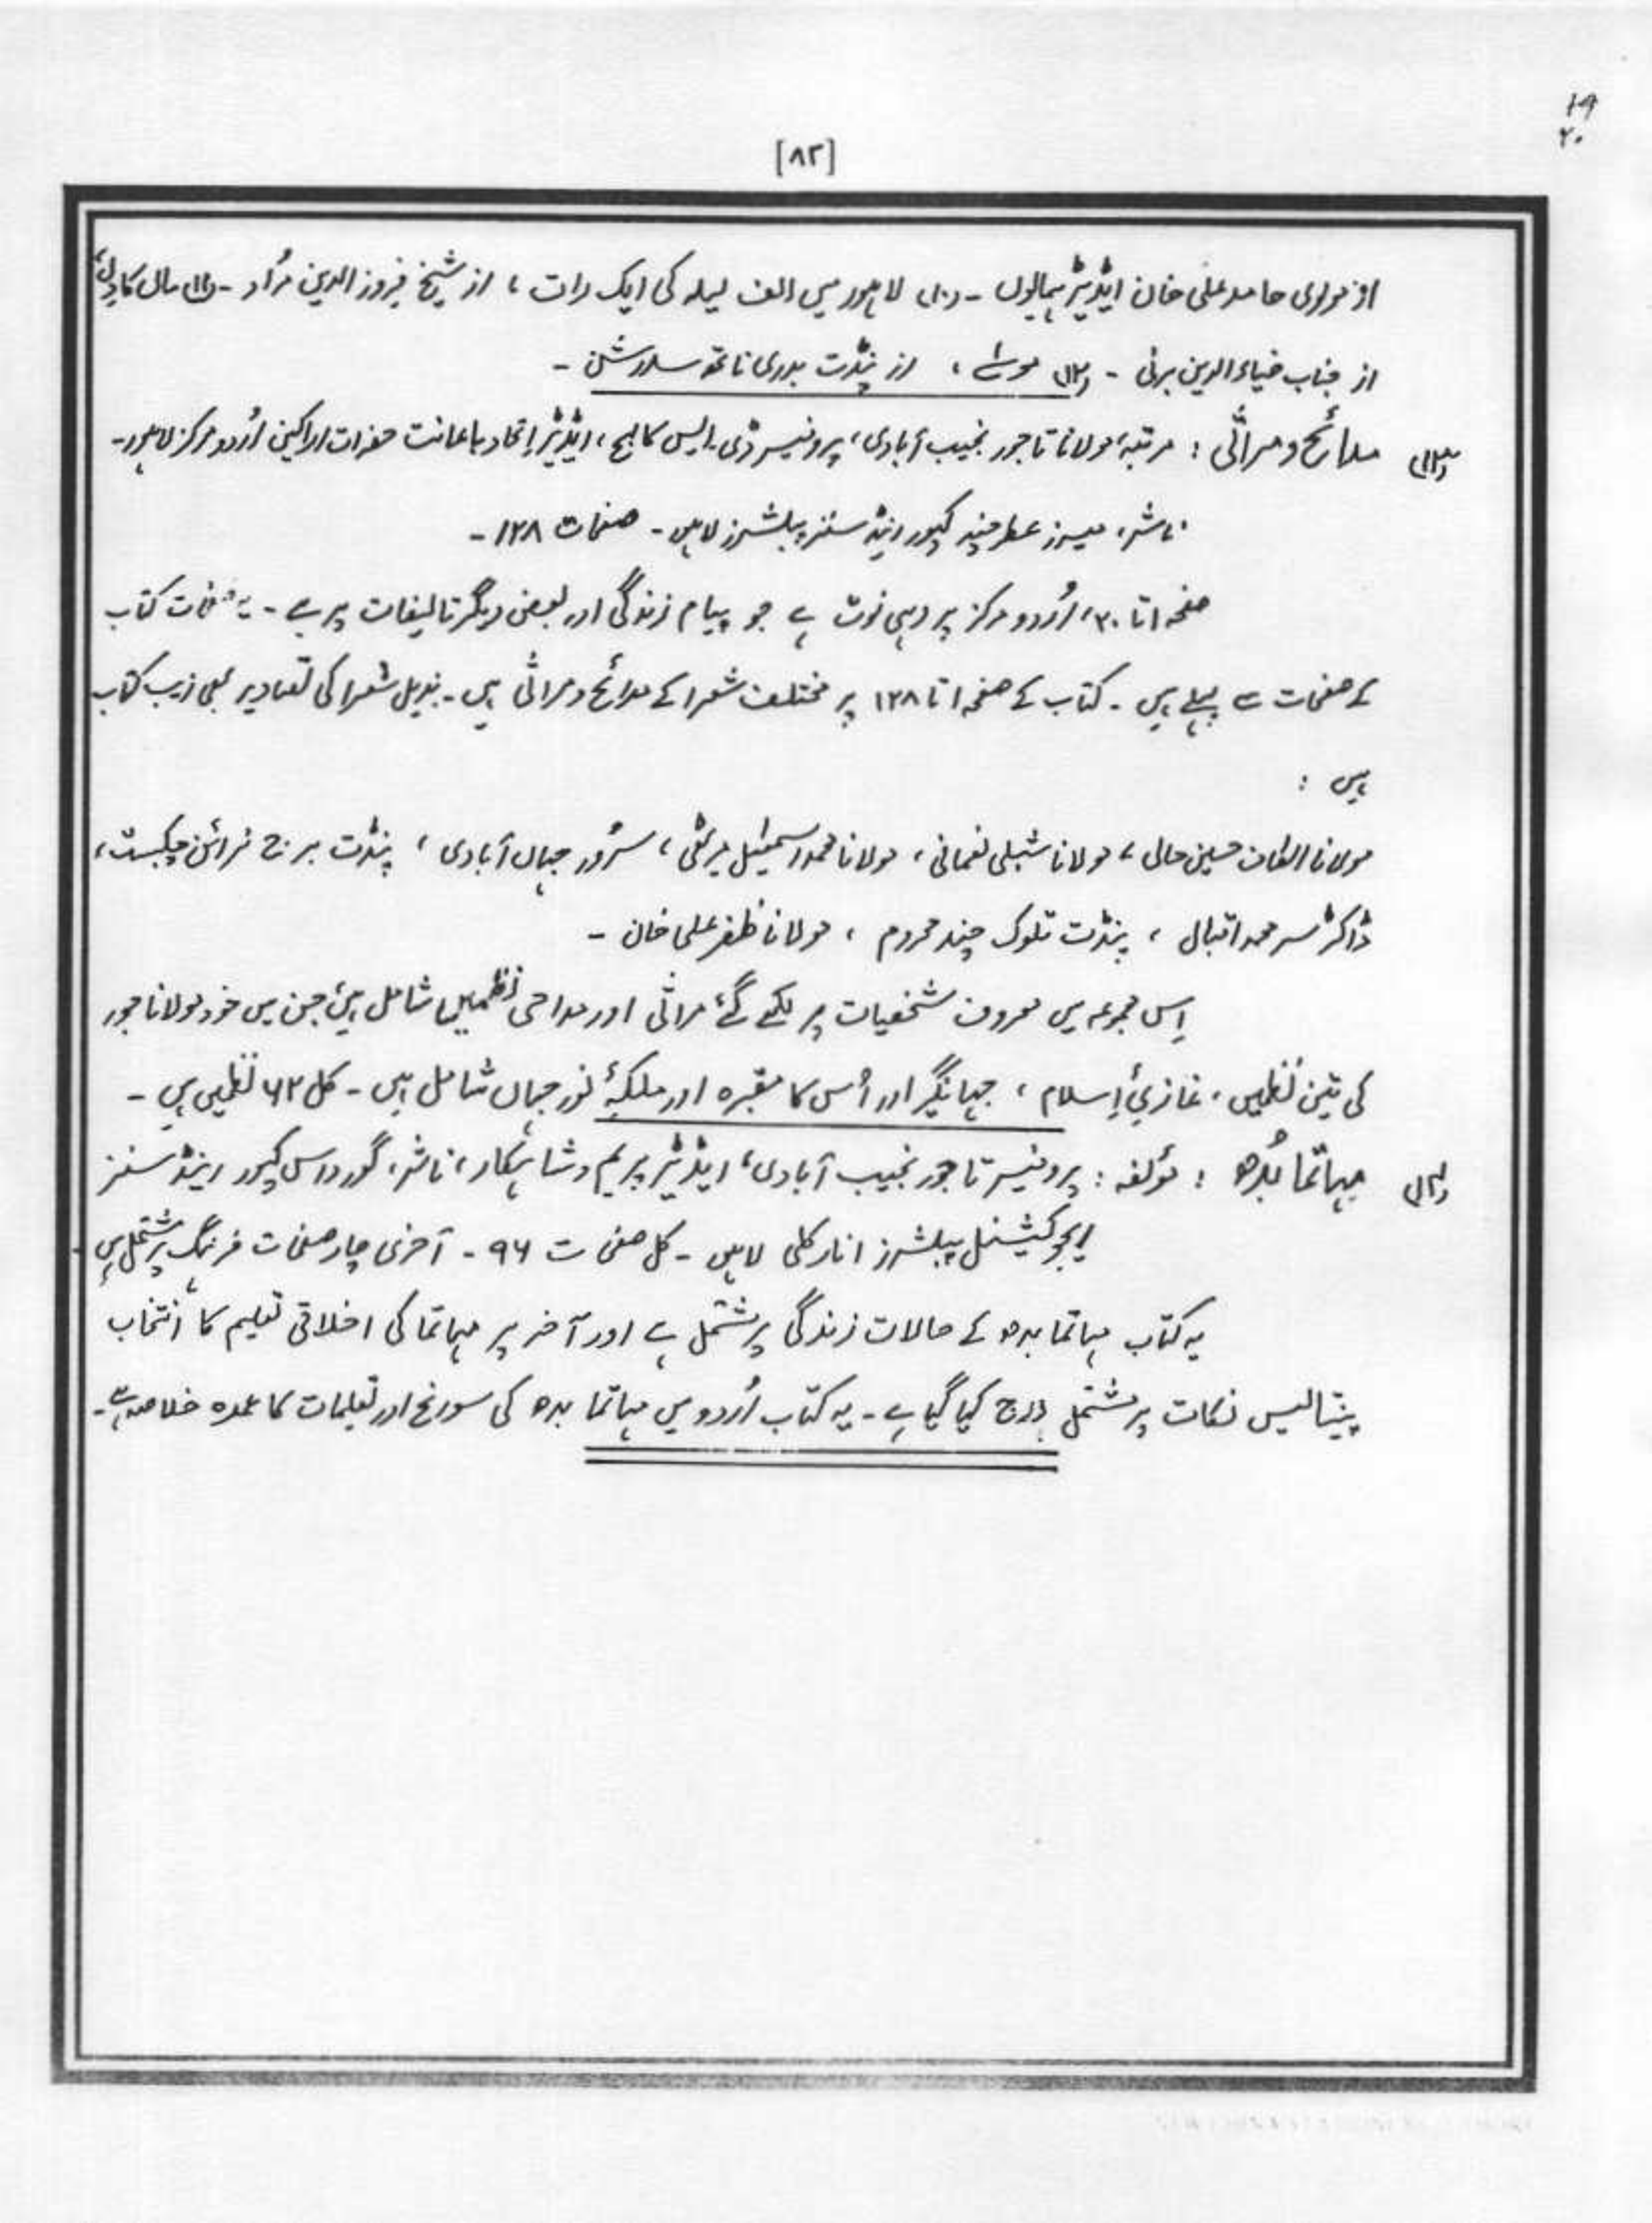 ۱۹
۲۰
[۸۲]
از مولوی حامد علی خان ایڈیٹر ہمایوں - (۱۰) لاہور میں الف لیلہ کی ایک رات ، از شیخ فیروز الدین مُراد - (۱۱) ماں کا دل ،
از جناب ضیاء الدین برنی - (۱۲) ، از پنڈت بدری ناتھ سدرشن -
(۱۳) مدائح و مراثی : مرتبہ مولانا تاجور نجیب آبادی ، پروفیسر ڈی - ایس کالج ، ایڈیٹر اتحاد باعانت حضرات اراکین اُردو مرکز لاہور -
ناشر ، میسرز عطر چند کپور اینڈ سنز پبلشرز لاہور - صفحات ۱۲۸ -
صفحہ ۱ تا ۳۰ ، اُردو مرکز پر وہی نوٹ ہے جو پیام زندگی اور بعض دیگر تالیفات پر ہے - یہ صفحات کتاب
کے صفحات سے پہلے ہیں - کتاب کے صفحہ ۱ تا ۱۲۸ پر مختلف شعرا کے مدائح و مراثی ہیں - بذیل شعرا کی تصاویر بھی زیب کتاب
ہیں :
مولانا الطاف حسین حالی ، مولانا شبلی نعمانی ، مولانا محمد اسمٰعیل میرٹھی ، سُرور جہاں آبادی ، پنڈت برج نرائن چکبست ،
ڈاکٹر سر محمد اقبال ، پنڈت تلوک چند محروم ، مولانا ظفر علی خان -
اِس مجموعہ میں معروف شخصیات پر لکھے گئے مراثی اور مداحی نظمیں شامل ہیں جن میں خود مولانا تاجور
کی تین نظمیں ، غازیٔ اِسلام ، جہانگیر اور اُس کا مقبرہ اور ملکۂ نور جہاں شامل ہیں - کل ۶۲ نظمیں ہیں -
(۱۴) مہاتما بُدھ : مؤلفہ : پروفیسر تاجور نجیب آبادی ، ایڈیٹر پریم و شاہکار ، ناشر ، گوردداس کپور اینڈ سنز
ایجوکیشنل پبلشرز انارکلی لاہور - کل صفحات ۹۶ - آخری چار صفحات فرہنگ پر مشتمل ہیں -
یہ کتاب مہاتما بدھ کے حالات زندگی پر مشتمل ہے اور آخر پر مہاتما کی اخلاقی تعلیم کا انتخاب
پینتالیس نکات پر مشتمل درج کیا گیا ہے - یہ کتاب اُردو میں مہاتما بدھ کی سوانح اور تعلیمات کا عمدہ خلاصہ ہے -